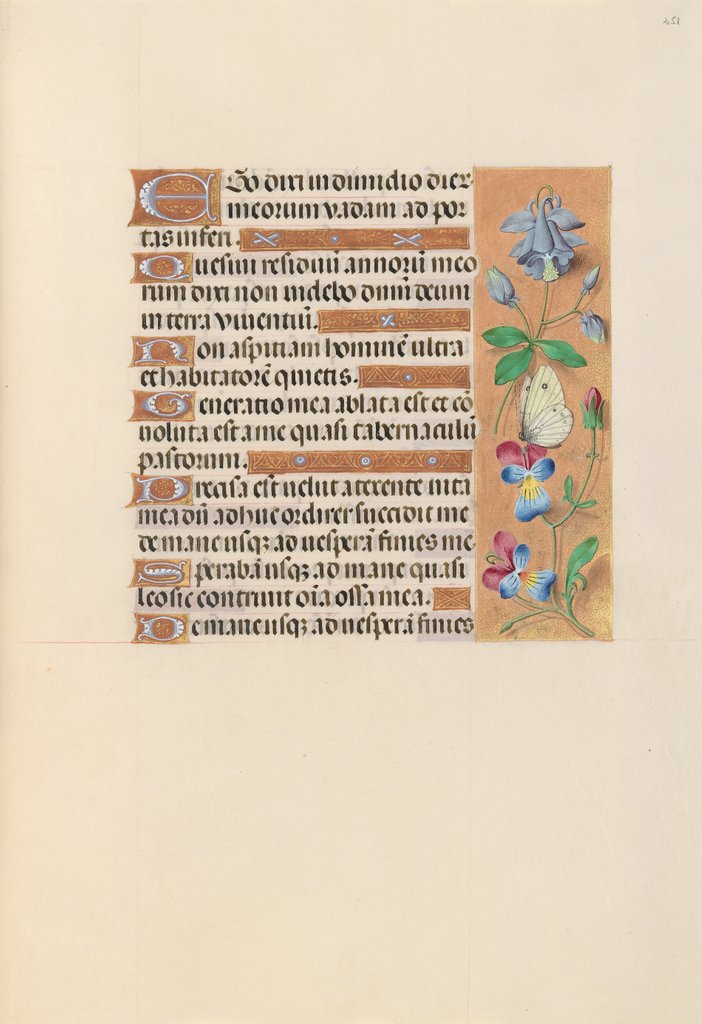 251
Ego dixi in dimidio dier
meorum vadam ad por
tas inferi.
Quesiui residuū annorū meo
rum dixi non videbo dominū deum
in terra viuentiū.
Non aspiciam hominē ultra
et habitatorē quietis.
Generatio mea ablata est et cō
uoluta est a me quasi tabernaculū
pastorum.
Precisa est uelut a texente uita
mea dū adhuc ordirer succidit me
de mane usqz ad uesperā finies me
Sperabā usqz ad mane quasi
leo sic contriuit oīa ossa mea.
De mane usqz ad uesperā finies